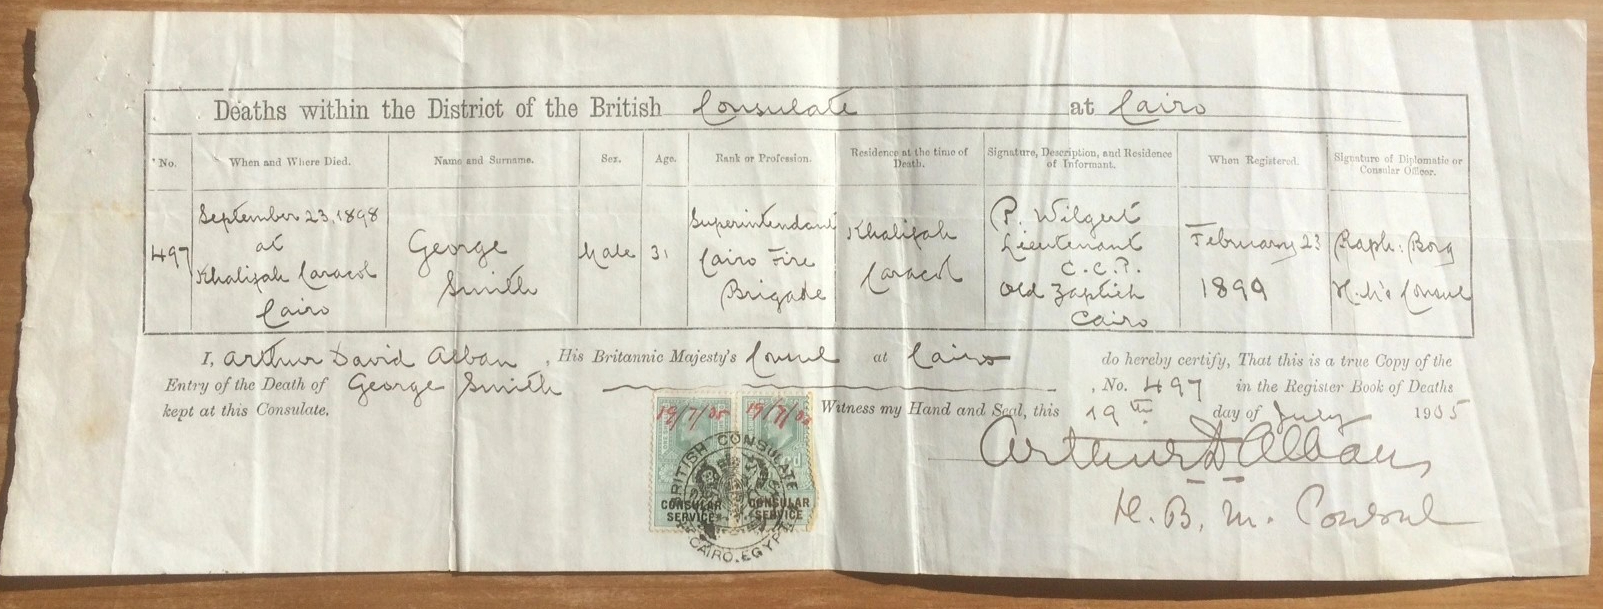 Deaths within the District of the British Consulate at Cairo
No. When and Where Died. Name and Surname. Sex. Age. Rank or Profession. Residence at the time of Death. Signature, Description, and Residence of Informant. When Registered. Signature of Diplomatic or Consular Officer.
497
September 23, 1898
at
Khalifah Caracol
Cairo
George
Smith
Male
31
Superintendant
Cairo Fire
Brigade
Khalifah
Caracol
P. Wilgert
Lieutenant
C.C.P.
Old Zaptieh
Cairo
February 23
1899
Raph: Borg
H.M's Consul
I, Arthur David Alban, His Britannic Majesty's Consul at Cairo do hereby certify, That this is a true Copy of the
Entry of the Death of George Smith, No. 497 in the Register Book of Deaths
kept at this Consulate. Witness my Hand and Seal, this 19th day of July 1905
Arthur D Alban
H. B. M. Consul
19/7/05 19/7/05
BRITISH CONSULATE
CONSULAR SERVICE
CONSULAR SERVICE
CAIRO. EGYPT